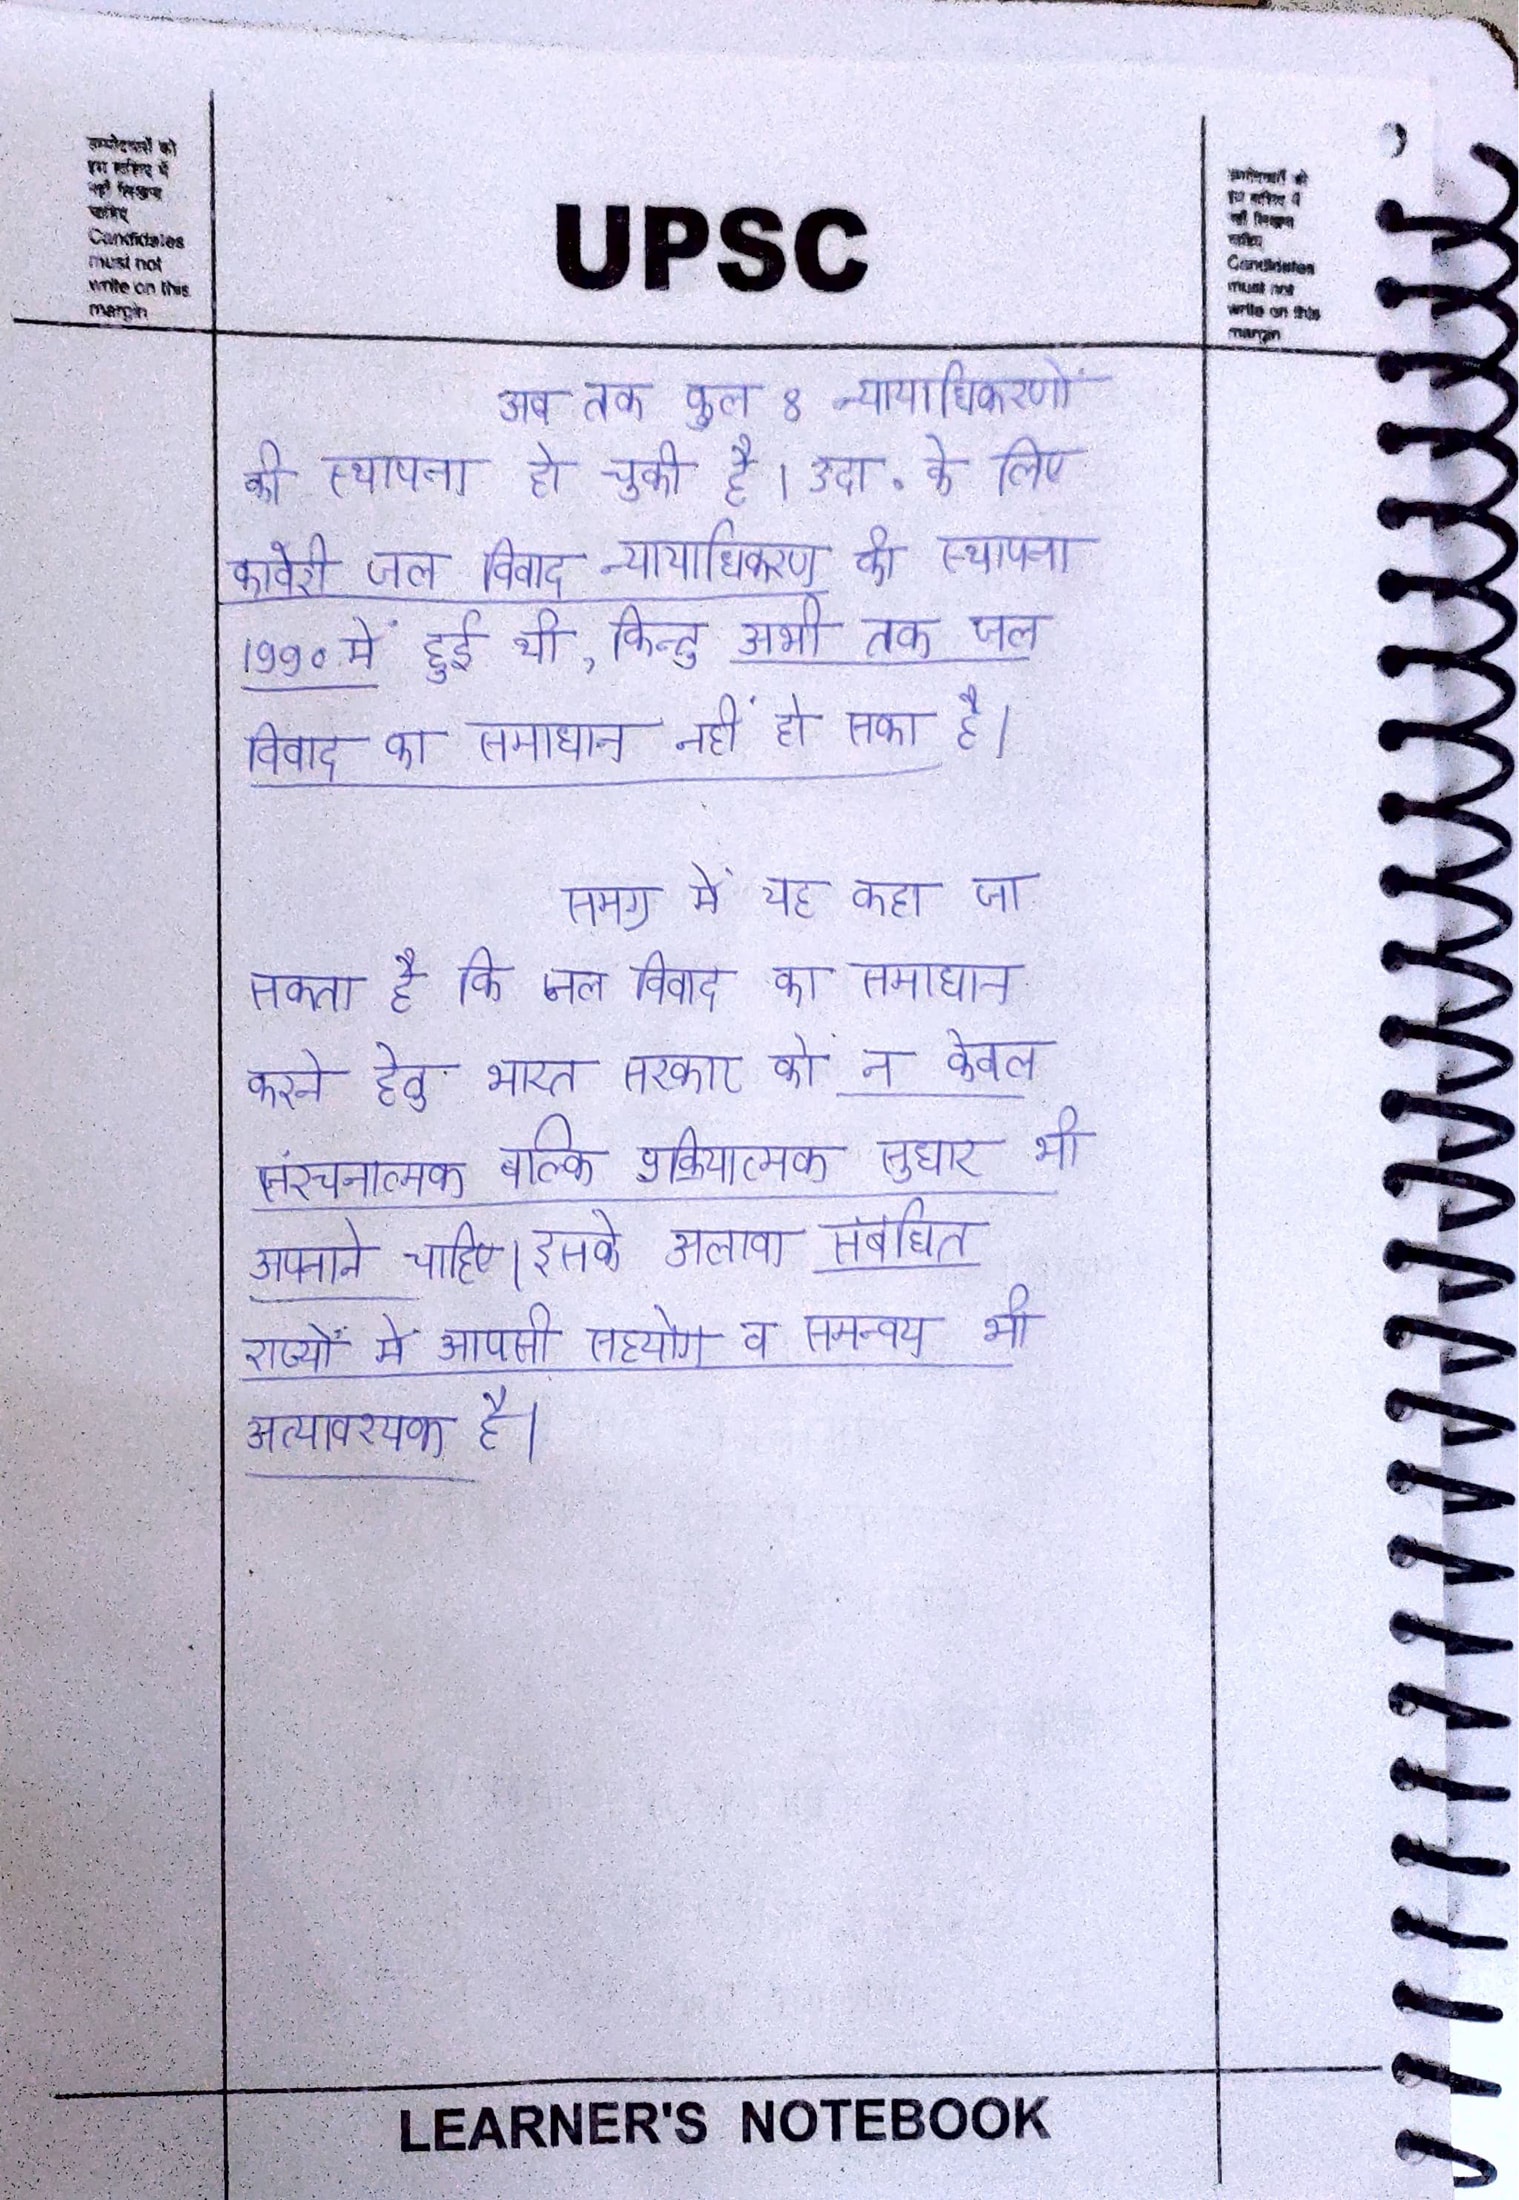 उम्मीदवारों को
इस हाशिए में
नहीं लिखना
चाहिए
Candidates
must not
write on this
margin
UPSC
उम्मीदवारों को
इस हाशिए में
नहीं लिखना
चाहिए
Candidates
must not
write on this
margin
अब तक कुल 8 न्यायाधिकरणों
की स्थापना हो चुकी है। उदा. के लिए
कावेरी जल विवाद न्यायाधिकरण की स्थापना
1990 में हुई थी, किन्तु अभी तक जल
विवाद का समाधान नहीं हो सका है।
समग्र में यह कहा जा
सकता है कि जल विवाद का समाधान
करने हेतु भारत सरकार को न केवल
संरचनात्मक बल्कि प्रक्रियात्मक सुधार भी
अपनाने चाहिए। इसके अलावा संबंधित
राज्यों में आपसी सहयोग व समन्वय भी
अत्यावश्यक है।
LEARNER'S NOTEBOOK